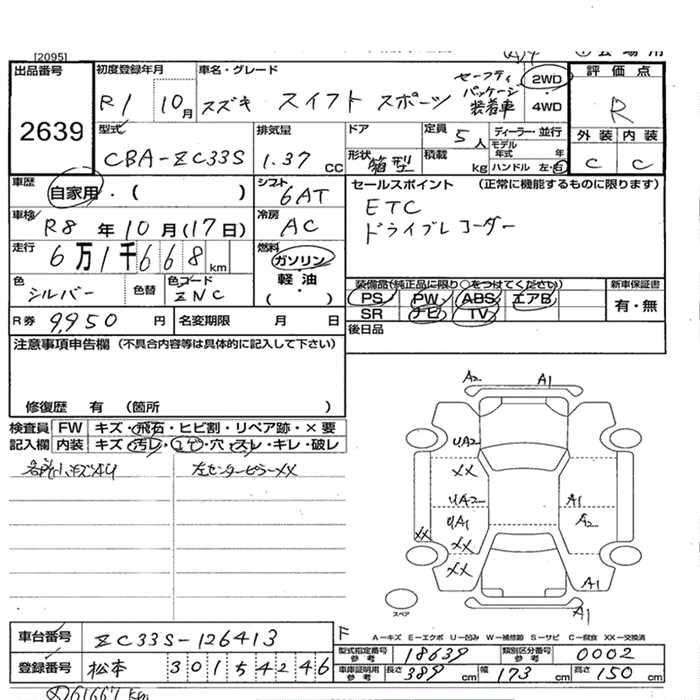 [2095]
出品番号
2639
初度登録年月
R1 10月
車名・グレード
スズキ スイフト スポーツ
セーフティパッケージ装着車
2WD
4WD
評価点
R
外装 内装
C C
型式
CBA-ZC33S
排気量
1.37 cc
ドア
形状 箱型
定員 5人
積載 kg
ディーラー・並行
モデル年式 年
ハンドル 左・右
車歴
自家用・( )
シフト
6AT
車検
R8年10月(17日)
冷房
AC
走行
6万1千668km
燃料
ガソリン
軽油
( )
色
シルバー
色替
色コード
ZNC
R券 9,950円
名変期限 月 日
セールスポイント (正常に機能するものに限ります)
ETC
ドライブレコーダー
装備品(純正品に限り○をつけてください)
PS PW ABS エアB
SR ナビ TV
新車保証書
有・無
後日品
注意事項申告欄(不具合内容等は具体的に記入して下さい)
修復歴 有 (箇所 )
検査員記入欄
FW キズ・飛石・ヒビ割・リペア跡・×要
内装 キズ・汚レ・コゲ・穴・スレ・キレ・破レ
各所小キズAU
左センターピラーXX
A2 A1
UA2
XX
UA2 A1
UA1 A2
XX XX
XX A1
A1
スペア
F
A-キズ E-エクボ U-凹み W-補修跡 S-サビ C-腐食 XX-交換済
車台番号
ZC33S-126413
登録番号
松本 301 5 4246
型式指定番号 参考 18639
類別区分番号 参考 0002
車庫証明用 参考 長さ 389 cm 幅 173 cm 高さ 150 cm
61667 Km